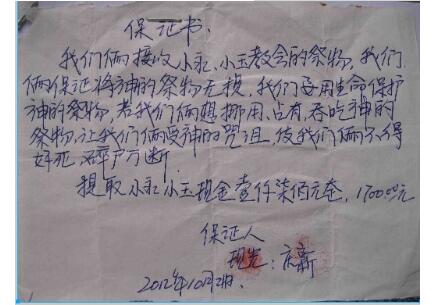 保证书:
我们俩接收小永、小玉教会的祭物,我们
俩保证将神的祭物无损,我们要用生命保护
神的祭物,若我们俩想挪用、占有、吞吃神的
祭物,让我们俩受神的咒诅,使我们俩不得
好死,碎尸万断.
提取小永小玉现金壹仟柒佰元整,1700.00元
保证人
现先:庆新
2012年10月2日.